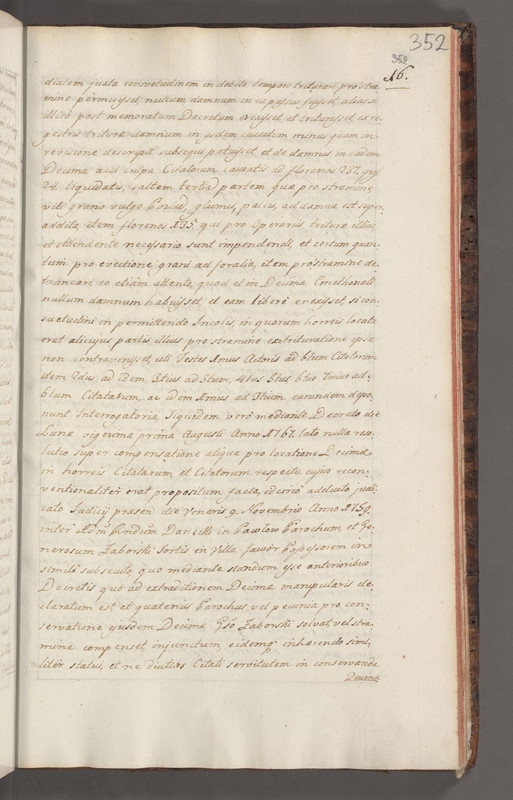 352
359
16.
cialem juxta consvetudinem in debito tempore triturari pro stra-
mine permisisset, nullum damnum in ea passus fuisset, alias
illico post memoratum Decretum evexisset, et triturasset, ex re-
gestris triturae damnum in eadem causatum minus quam in
revisione descript subsequi patuisset, et de damnis in eadem
Decima acsi culpa Citatorum causatis ad florenos 257 gros
24 liquidatis, saltem tertia partem qua pro stramine,
vel grano vulgo paleis, ad damna est super-
addita, item florenos 135, qui pro Operariis triturae illius,
et attendente necessario sunt impendendi, et certum quan-
tum pro evectione grani ad foralia, item pro stramine de-
trancari eo etiam attento, quod et in Decima Cmethonali
nullum damnum habuisset, et eam libere evexisset, si con-
suetudini in permittendo Incolis, in quorum horreis locata
erat alicujus partis illius pro stramine extrituratione ipse
non contravenisset, uti Testes 1mus Actoris ad 6tum Citatorum
idem 2dus ad idem 3tius ad 5tum, 4tus 5tus 6tus 7mus ad
6tum Citatarum, ac idem 1mus ad 3tium earundem depo-
nunt Interrogatoria, siquidem vero mediante Decreto die
Lunae vigesima prima Augusti Anno 1767 lato nulla reso-
lutio super compensatione aliqua pro locatione Decimae
in horreis Citatarum, et Citatorum respectu cujus recon-
ventionaliter erat propositum facta, idcirco adducto judi-
cato Judicij praesen die Veneris 9. Novembris Anno 1759
inter Danielli in Pawlow Parochum, et Ge-
nerosum Zaborski Sortis in Villa Jawor Possessorem in
simili subsecuto, quo mediante standum esse anterioribus
Decretis quo ad extraditionem Decimae manipularis de-
claratum est, et quatenus Parochus, vel pecunia pro con-
servatione ejusdem Decimae Gso Zaborski solvat, vel stra-
mine compenset, injunctum, eidemq inhaerendo simi-
liter status, et ne diutius Citati servitutem in conservanda
Decima